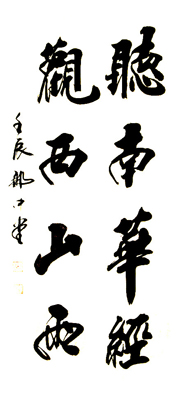 聽南華經
觀西山雨
壬辰